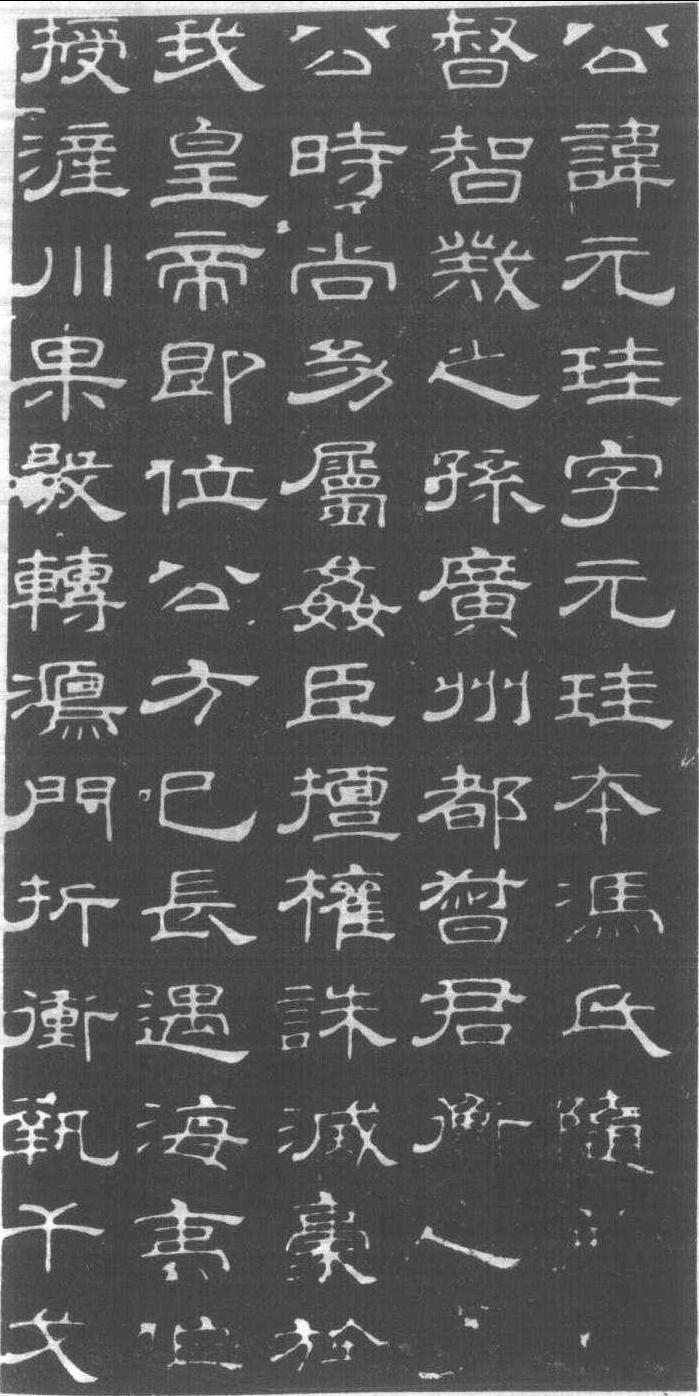 公諱元珪字元珪本馮氏隨
督智戣之孫廣州都督君衡
公時尚幼屬姦臣擅權誅滅豪
我皇帝即位公方已長遇海夷
授滻川果毅轉鴻門折衝執干戈